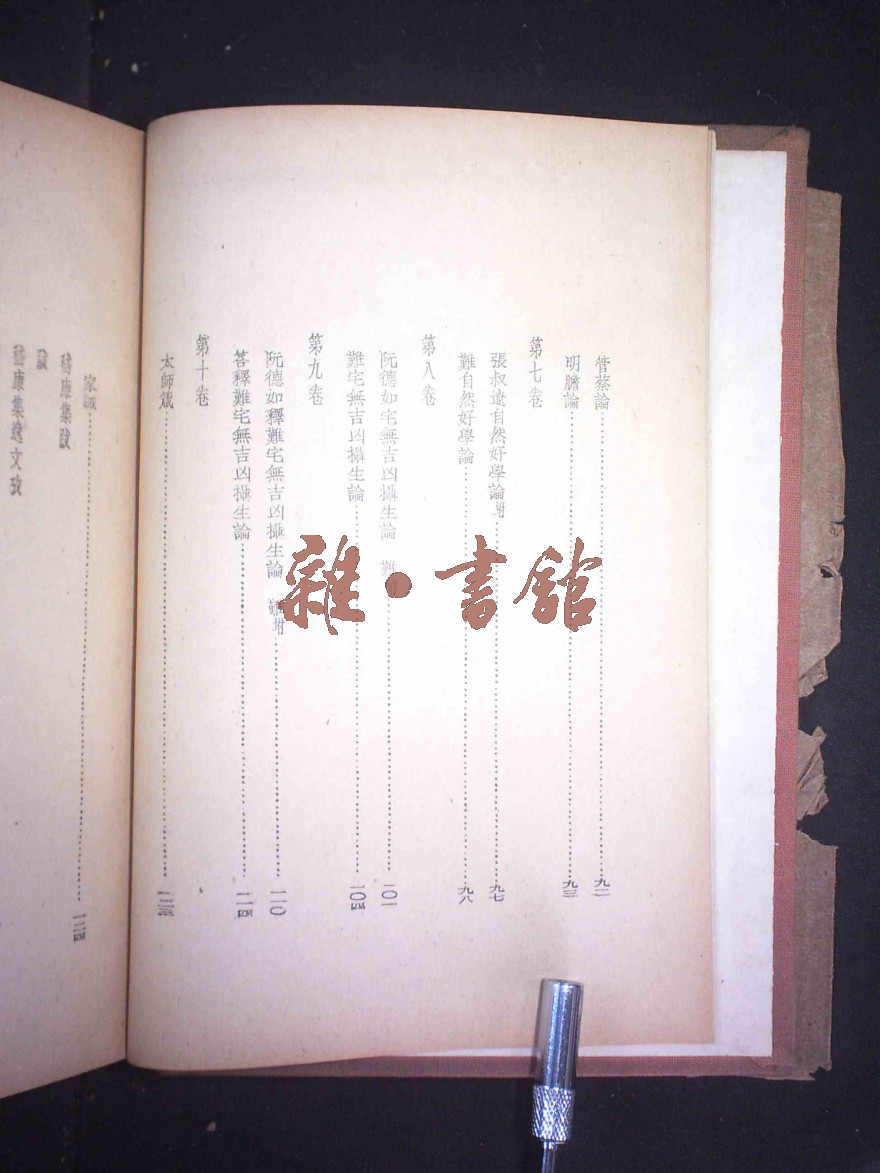 管蔡論……九一
明膽論……九三
第七卷
張叔遼自然好學論 附……九七
難自然好學論……九八
第八卷
阮德如宅無吉凶攝生論 難……一〇一
難宅無吉凶攝生論……一〇四
第九卷
阮德如釋難宅無吉凶攝生論 難附……一一〇
答釋難宅無吉凶攝生論……一一四
第十卷
太師箴……一二三
家誡……一二四
嵇康集跋
跋
嵇康集逸文攷
雜·書館